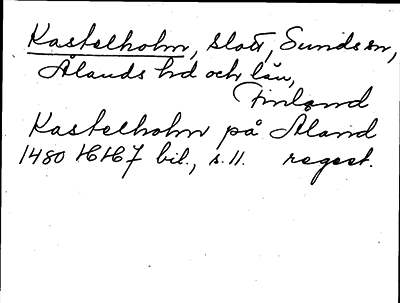 Kastelholm, slott, Sunds sn,
Ålands hd och län,
Finland
Kastelholm på Åland
1480 16/67 bil., s. 11. regest.